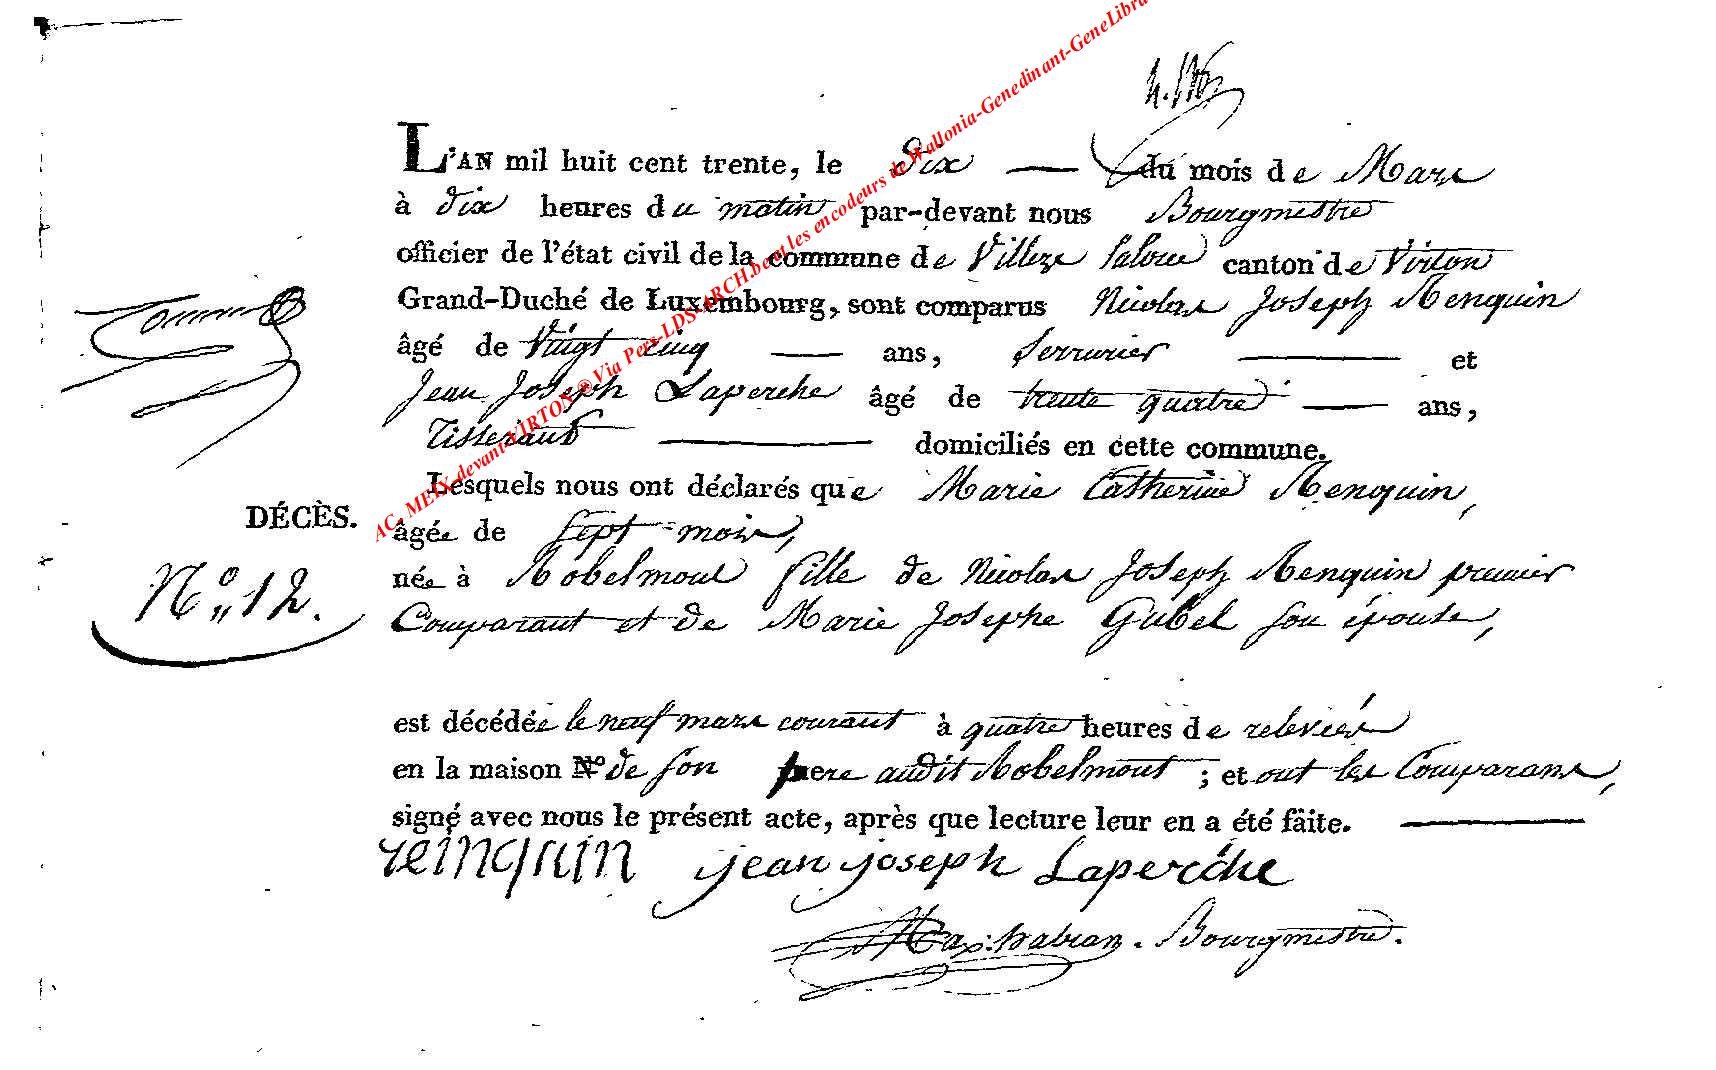 L'AN mil huit cent trente, le Dix — du mois de Mars
à dix heures du matin par-devant nous Bourgmestre
officier de l'état civil de la commune de Villers laloue canton de Virton
Grand-Duché de Luxembourg, sont comparus Nicolas Joseph Renquin
âgé de Vingt cinq — ans, Serrurier — et
Jean Joseph Laperche âgé de trente quatre — ans,
Tisserant — domiciliés en cette commune.
Lesquels nous ont déclarés que Marie Catherine Renquin,
DÉCÈS.
âgée de sept mois,
N.° 12.
née à Robelmont fille de Nicolas Joseph Renquin premier
Comparant et de Marie Josephe Gubel son épouse,
est décédée le neuf mars courant à quatre heures de relevées
en la maison N° de son pere audit Robelmont ; et ont les Comparans,
signé avec nous le présent acte, après que lecture leur en a été faite. —
reinquin jean joseph Laperche
Bourgmestre.
AC. MEIX-devant-VIRTON ® Via Pers-LDS-ARCH.be et les encodeurs de Wallonia-Genedinant-GeneLibra